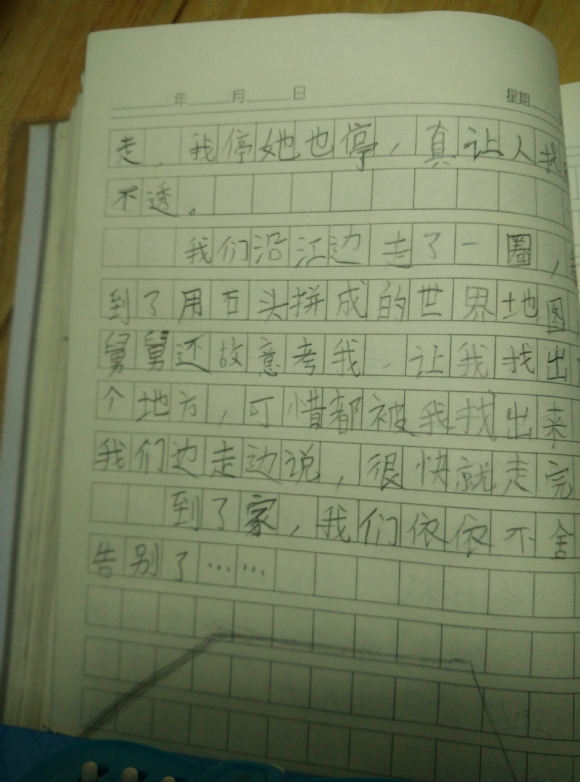 年 月 日 星期
走，我停她也停，真让人找
不透。
我们沿江边走了一圈，
到了用石头拼成的世界地图
舅舅还故意考我，让我找出
个地方，可惜都被我找出来
我们边走边说，很快就走完
到了家，我们依依不舍
告别了……